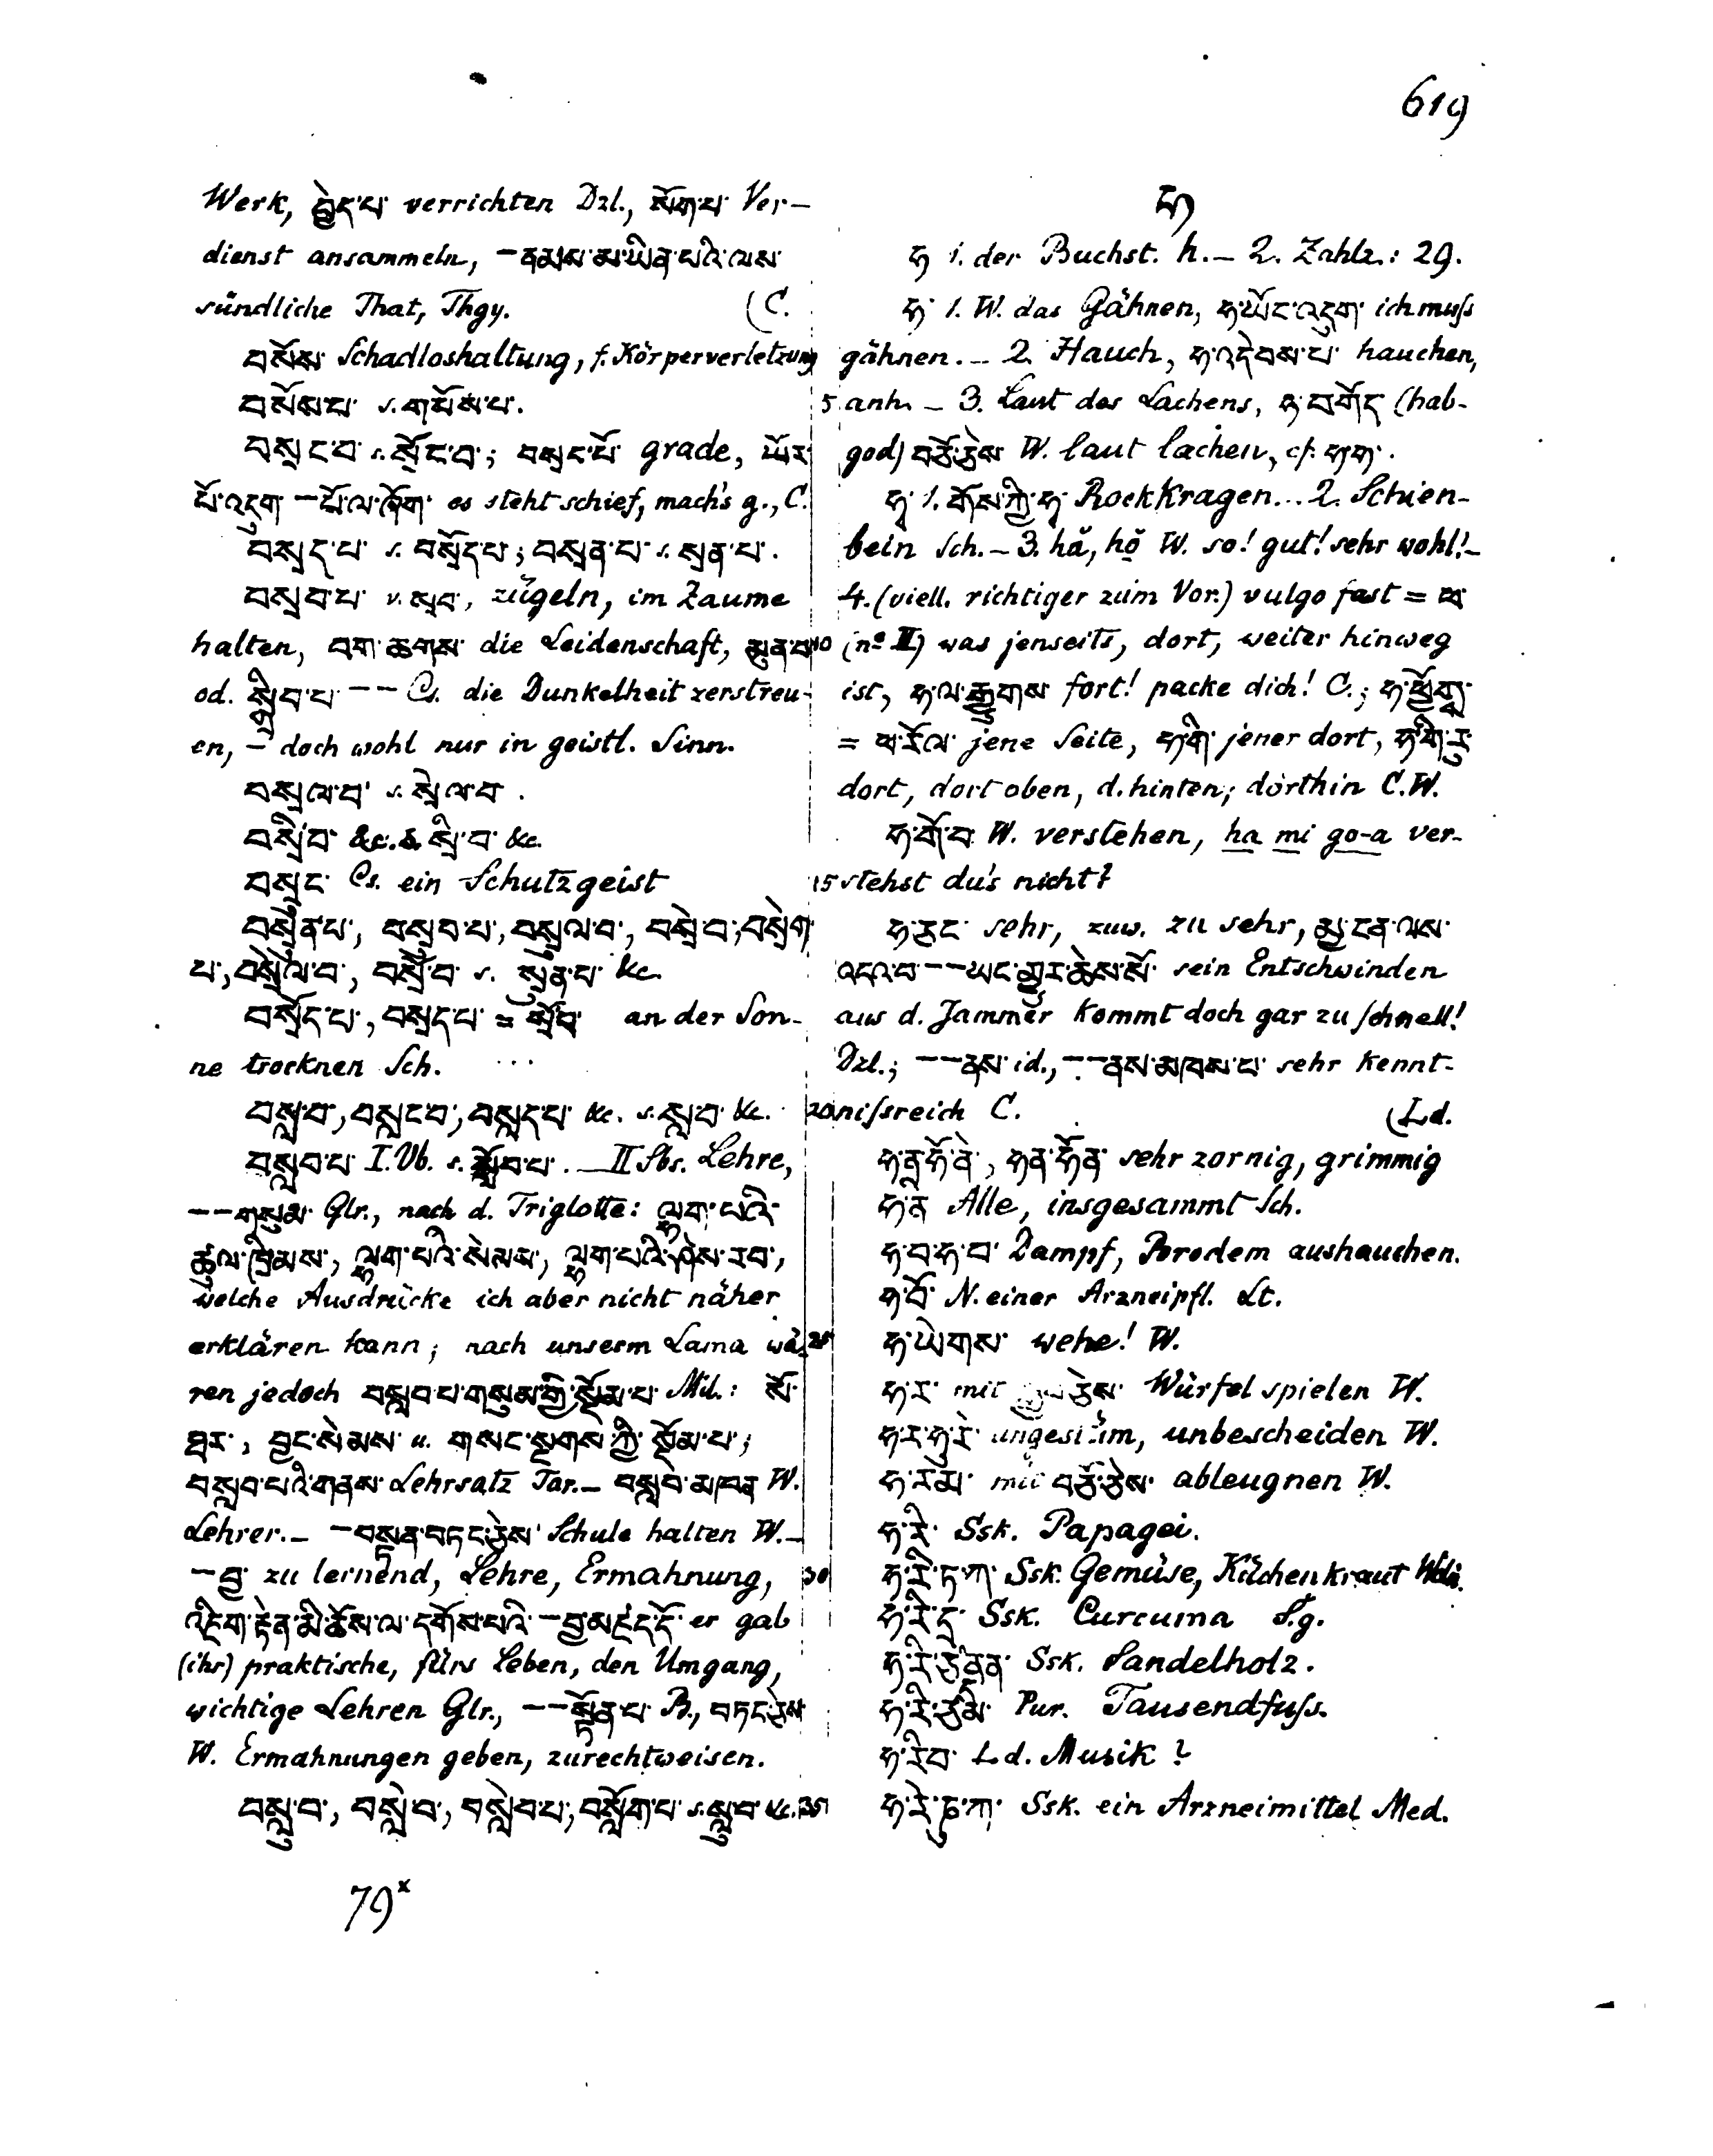 619
Werk, བྱེད་པ་ verrichten Dzl., སོག་པ་ Ver-
dienst ansammeln, –ནམས་མ་ཡིན་པའི་ལས་
sündliche That, Thgy. (C.
བསོས་ Schadloshaltung, f. Körperverletzung
བསོས་པ་ s. གསོས་པ་.
བསྲང་བ་ s. སྲོང་བ་; བསྲང་པོ་ grade, ཡོར་
པོ་འདུག་ –པོ་ལ་ཁོག་ es steht schief, mach's g., C.
བསྲད་པ་ s. བསྲོད་པ་; བསྲན་པ་ s. སྲན་པ་.
བསྲབ་པ་ v. སྲབ་, zügeln, im Zaume
halten, བག་ཆགས་ die Leidenschaft, མུན་པ་
od. སྒྲིབ་པ་ –– Cs. die Dunkelheit zerstreu-
en, – doch wohl nur in geistl. Sinn.
བསྲལ་བ་ s. སྲེལ་བ་.
བསྲི་བ་ &c. s. སྲི་བ་ &c.
བསྲུང་ Cs. ein Schutzgeist
བསྲུན་པ་, བསྲུབ་པ་, བསྲུལ་བ་, བསྲེ་བ་, བསྲེག་
པ་, བསྲེལ་བ་, བསྲོ་བ་ s. སྲུན་པ་ &c.
བསྲོད་པ་, བསྲད་པ་ = སྲོབ་ an der Son-
ne trocknen Sch.
བསླ་བ་, བསླང་བ་, བསླད་པ་ &c. s. སླ་བ་ &c.
བསླབ་པ་ I. Vb. s. སློབ་པ་. – II Sbs. Lehre,
––གསུམ་ Glr., nach d. Triglotte: ལྷག་པའི་
ཚུལ་ཁྲིམས་, ལྷག་པའི་སེམས་, ལྷག་པའི་ཤེས་རབ་,
welche Ausdrücke ich aber nicht näher
erklären kann; nach unserm Lama wä-
ren jedoch བསླབ་པ་གསུམ་གྱི་སྡོམ་པ་ Mil.: སོ་
ཐར་, བྱང་སེམས་ u. གསང་སྔགས་ཀྱི་སྡོམ་པ་;
བསླབ་པའི་གནས་ Lehrsatz Tar. – བསླབ་མཁན་ W.
Lehrer. – –བསྟན་བཏང་ཅེས་ Schule halten W. –
–བྱ་ zu lernend, Lehre, Ermahnung,
འཇིག་རྟེན་མི་ཆོས་ལ་དགོས་པའི་–བྱ་མཛད་དོ་ er gab
(ihr) praktische, fürs Leben, den Umgang,
wichtige Lehren Glr., ––སྟོན་པ་ B., བཏང་ཅེས་
W. Ermahnungen geben, zurechtweisen.
བསླུ་བ་, བསླེ་བ་, བསླེབ་པ་, བསློག་པ་ s. སླུ་བ་ &c.
79ˣ
ཧ
ཧ 1. der Buchst. h. – 2. Zahlz.: 29.
ཧ་ 1. W. das Gähnen, ཧ་ཡོང་འདུག་ ich muss
gähnen. – 2. Hauch, ཧ་འདེབས་པ་ hauchen,
5 anh. – 3. Laut des Lachens, ཧ་བགོད་ (hab-
god) བཅོ་ཅེས་ W. laut lachen, cf. ཧག་.
ཧྭ་ 1. གོས་ཀྱི་ཧྭ་ Rockkragen... 2. Schien-
bein Sch. – 3. hă, hŏ W. so! gut! sehr wohl! –
4. (viell. richtiger zum Vor.) vulgo fast = ཕ་
10 (nº II) was jenseits, dort, weiter hinweg
ist, ཧ་ལ་རྒྱུགས་ fort! packe dich! C.; ཧ་ཕྱོགས་
= ཕ་རོལ་ jene Seite, ཧ་གི་ jener dort, ཧ་གི་རུ་
dort, dort oben, d. hinten; dorthin C. W.
ཧ་གོ་བ་ W. verstehen, ha mi go-a ver-
15 stehst du's nicht?
ཧ་ཅང་ sehr, zuw. zu sehr, མྱ་ངན་ལས་
འདའ་བ་––ཡང་མྱུར་ཆེས་སོ་ sein Entschwinden
aus d. Jammer kommt doch gar zu schnell!
Dzl.; ––ནས་ id., ––ནས་མཁས་པ་ sehr kennt-
20 nissreich C. (Ld.
ཧ་ན་ཧོ་ནེ་, ཧན་ཧོན་ sehr zornig, grimmig
ཧ་ནི་ Alle, insgesammt Sch.
ཧ་བ་ཧ་བ་ Dampf, Brodem aushauchen.
ཧ་བོ་ N. einer Arzneipfl. Lt.
25 ཧ་ཡེགས་ wehe! W.
ཧ་ར་ mit ཅེས་ Würfel spielen W.
ཧ་ར་ཧུ་རེ་ ungestüm, unbescheiden W.
ཧ་རམ་ mit བཅོ་ཅེས་ ableugnen W.
ཧ་རི་ Ssk. Papagei.
30 ཧ་རི་ཏ་ཀ་ Ssk. Gemüse, Küchenkraut Wdn.
ཧ་རི་དྲ་ Ssk. Curcuma S.g.
ཧ་རི་ཙནྡན་ Ssk. Sandelholz.
ཧ་རི་ཙུམི་ Pur. Tausendfuss.
ཧ་རིབ་ Ld. Musik?
35 ཧ་རེ་ཎུ་ཀ་ Ssk. ein Arzneimittel Med.